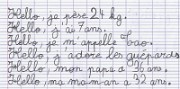 Hello, je pèse 24 kg.
Hello, j'ai 7 ans.
Hello, je m'appelle Tao.
Hello, j'adore les guépards
Hello, mon papa a 36 ans.
Hello, ma maman a 32 ans.